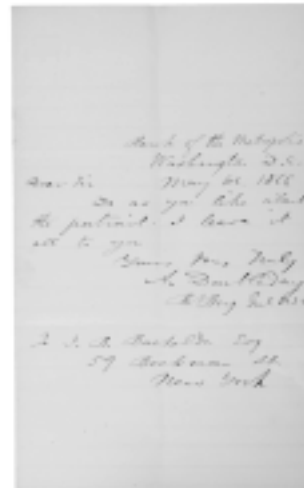 Bank of the Metropolis
Washington D.C.
Dear Sir May 1866
Do as you like about
the portrait. I leave it
all to you
Yours Very Truly
A. Doubleday
Esq
59 Beekman St
New York